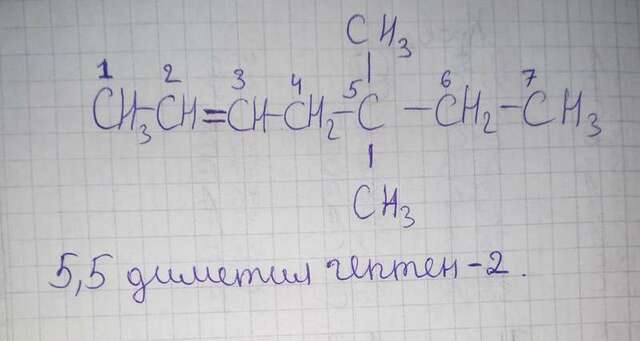 CH₃
1 2 3 4 5 6 7
CH₃-CH=CH-CH₂-C-CH₂-CH₃
CH₃
5,5 диметил гептен-2.